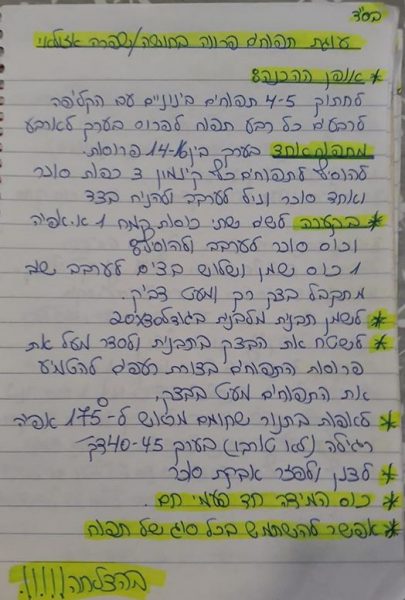 בס"ד
עוגת תפוחים פרווה בחושה/שפרה אזולאי
* אופן ההכנה:
לחתוך 4-5 תפוחים בינוניים עם הקליפה
לרבעים כל רבע תפוח לפרוס בערך לארבע
מתפוח אחד בערך בין 14-16 פרוסות.
להוסיף לתפוחים כף קינמון 3 כפות סוכר
ואחד סוכר וניל לערבב ולהניח בצד
* בקערה לשים שתי כוסות קמח 1 א.אפיה
וכוס סוכר לערבב ולהוסיף:
1 כוס שמן ושלוש בצים לערבב שוב
מתקבל בצק רק ומעט דביק.
* לשמן תבנית מלבנית בגודל 20X30
* לשטח את הבצק בתבנית ולסדר מעל את
פרוסות התפוחים בצורת רעפים להטמיע
את התפוחים מעט בבצק.
* לאפות בתנור שחומם מראש ל-175° אפיה
רגילה (לא טורבו) בערך 40-45 דק'
* לצנן ולפזר אבקת סוכר
* כוס המידה חד פעמי חם.
* אפשר להשתמש בכל סוג של תפוח
בהצלחה!!!!!